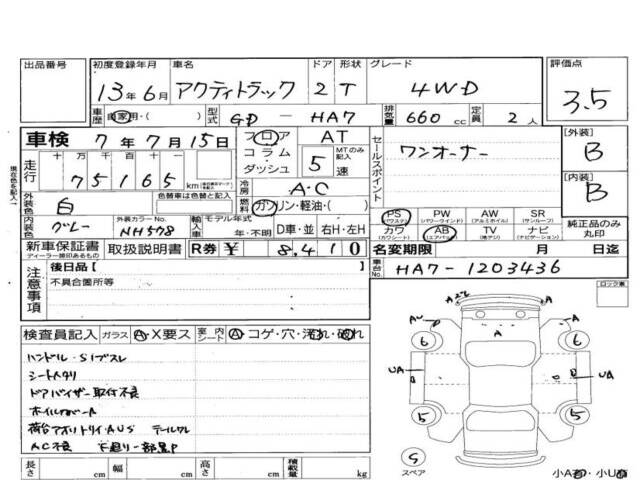 出品番号 初度登録年月 車名 ドア 形状 グレード 評価点
13年6月 アクティトラック 2 T 4WD 3.5
車歴 自家用・( ) 型式 GD-HA7 排気量 660cc 定員 2人
車検 7年7月15日 フロア AT
コラム・ MTのみ記入 セールスポイント ワンオーナー [外装] B
走行 十万千百十 ダッシュ 5速
75165 km 冷房 A・C [内装] B
外装色 白 色替車は色替と記入 燃料 ガソリン・軽油・( )
PS PW AW SR
(パワステ) (パワーウインド) (アルミホイル) (サンルーフ)
内装色 グレー 外装カラーNo. NH578 輸入車 モデル年式 年・不明 D車・並 右H・左H
カワ AB TV ナビ 純正品のみ丸印
(カワシート) (エアバック) (地デジ) (ナビゲーション)
新車保証書 取扱説明書 R券 ¥ 8,410 名変期限 月 日迄
ディーラー捺印あるもの
注意事項 後日品[ ] 車台No. HA7-1203436
不具合箇所等
検査員記入 ガラス A・X要ス 室内シート A・コゲ・穴・汚れ・破れ
ハンドル・S1ブスレ
シートヘタリ
ドアバイザー取付不良
AC不良
長さ cm 幅 cm 高さ cm 積載量 kg
A2
AU
6 6
UA UA
5 5
S
スペア